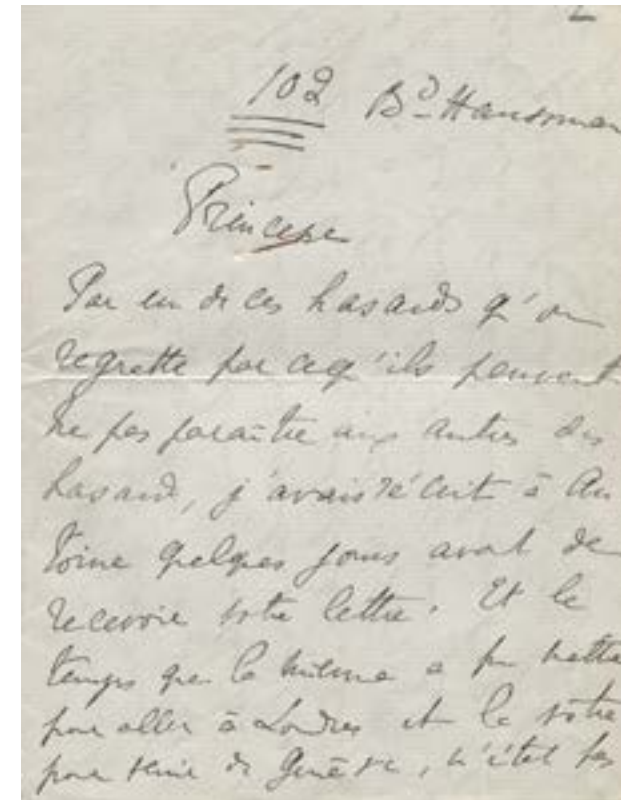 102 Bd Haussman
Princesse
Par un de ces hasards qu'on
regrette parce qu'ils peuvent
ne pas paraître aux autres des
hasards, j'avais récrit à An
toine quelques jours avant de
recevoir votre lettre. Et le
temps que la mienne a pu mettre
pour aller à Londres et la votre
pour venir de Genève, n'était pas